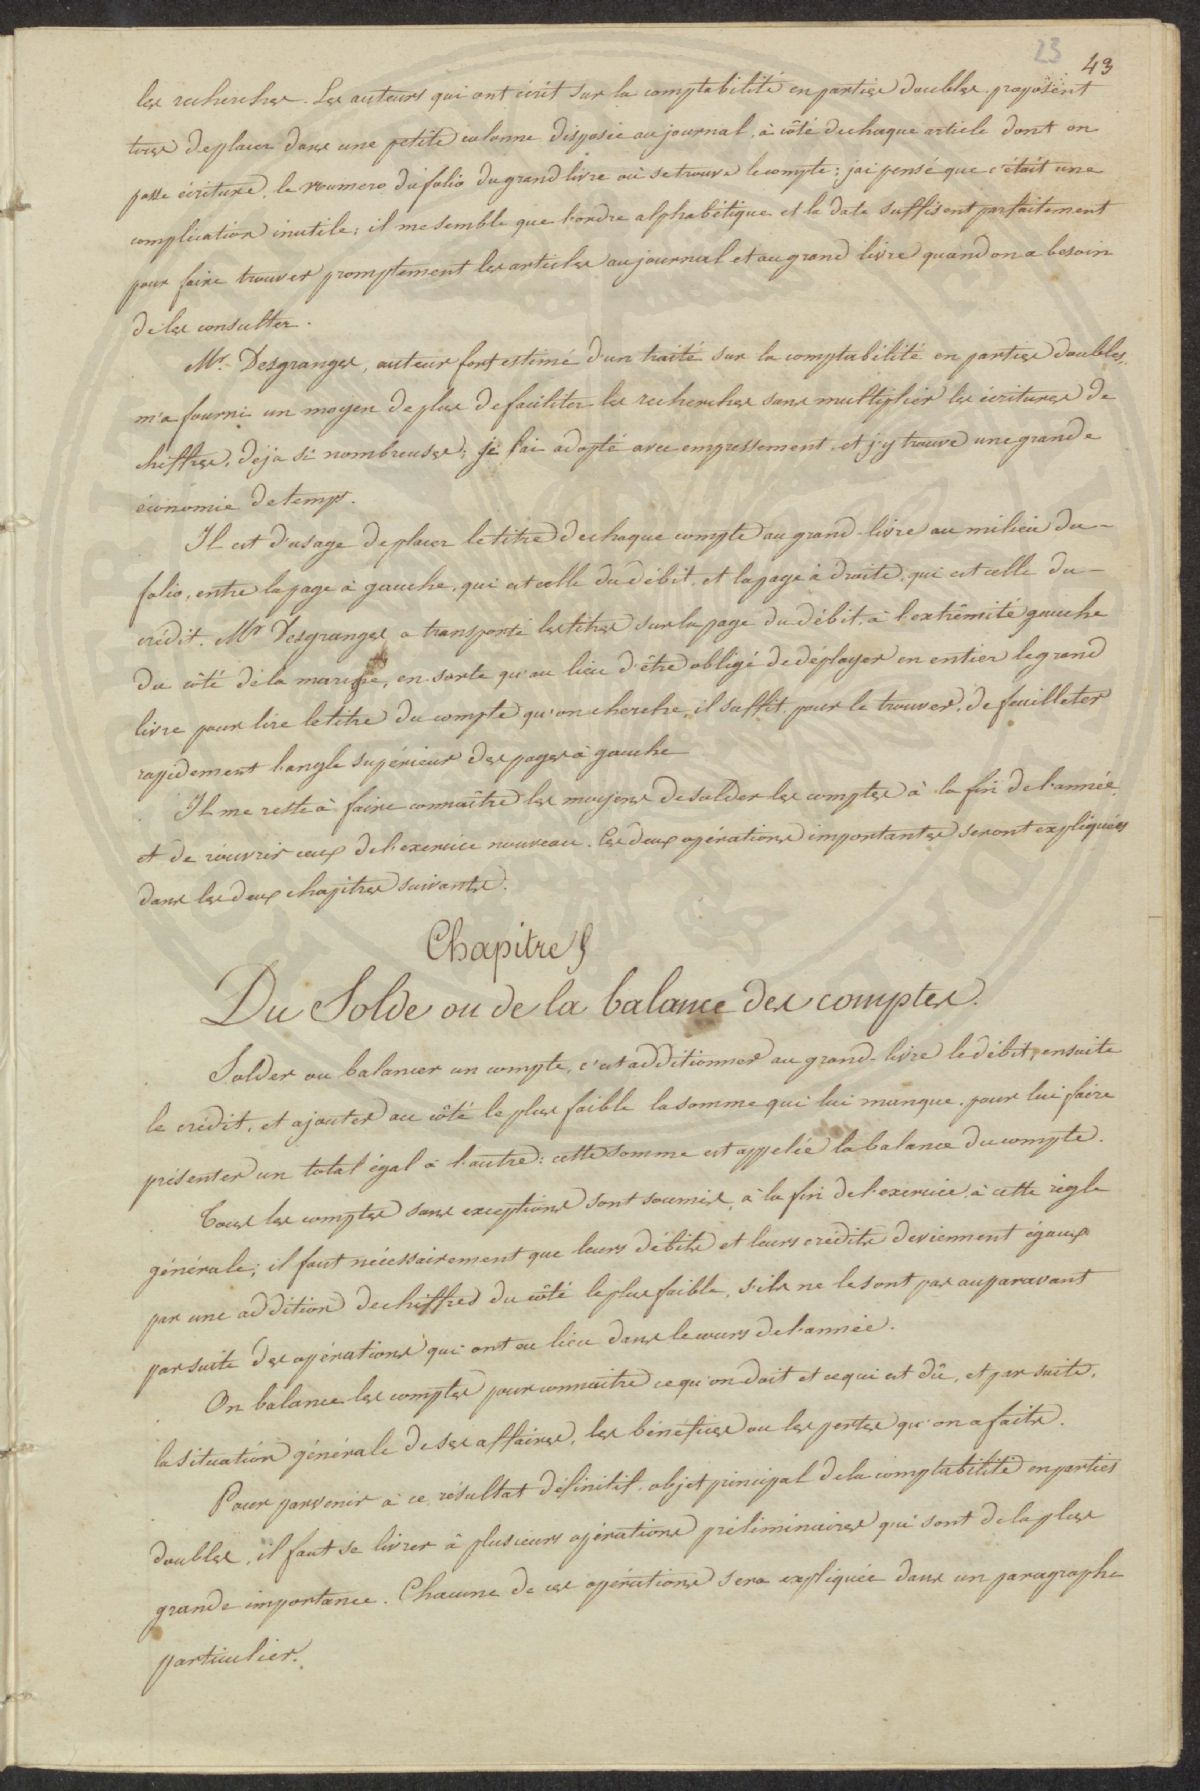 23
43
les recherches. Les auteurs qui ont écrit sur la comptabilité en parties doubles proposent
tous de placer dans une petite colonne disposée au journal, à côté de chaque article dont on
passe écriture, le numero du folio du grand livre où se trouve le compte; j'ai pensé que c'était une
complication inutile; il me semble que l'ordre alphabétique et la date suffisent parfaitement
pour faire trouver promptement les articles au journal et au grand livre quand on a besoin
de les consulter.
Mr. Desgranges, auteur fort estimé d'un traité sur la comptabilité en parties doubles,
m'a fourni un moyen de plus de faciliter les recherches sans multiplier les écritures de
chiffres, déja si nombreuses; je l'ai adopté avec empressement et j'y trouve une grande
économie de temps.
Il est d'usage de placer le titre de chaque compte au grand-livre au milieu du-
folio, entre la page à gauche, qui est celle du débit, et la page à droite, qui est celle du-
crédit. Mr Desgranges a transporté les titres sur la page du débit, à l'extrêmité gauche
du côté de la marge, en sorte qu'au lieu d'être obligé de déployer en entier le grand
livre pour lire le titre du compte qu'on cherche, il suffit, pour le trouver, de feuilleter
rapidement l'angle supérieur des pages à gauche
Il me reste à faire connaître les moyens de solder les comptes à la fin de l'année,
et de réouvrir ceux de l'exercice nouveau. Ces deux opérations importantes seront expliquées
dans les deux chapitres suivants.
Chapitre 5
Du Solde ou de la balance des comptes.
Solder ou balancer un compte, c'est additionner au grand-livre le débit, ensuite
le crédit, et ajouter au côté le plus faible la somme qui lui manque, pour lui faire
présenter un total égal à l'autre: cette somme est appelée la balance du compte.
Tous les comptes sans exceptions sont soumis, à la fin de l'exercice, à cette règle
générale; il faut nécessairement que leurs débits et leurs crédits deviennent égaux
par une addition de chiffres du côté le plus faible, s'ils ne le sont pas auparavant
par suite des opérations qui ont eu lieu dans le cours de l'année.
On balance les comptes pour connaître ce qu'on doit et ce qui est dû, et par suite,
la situation générale de ses affaires, les bénéfices ou les pertes qu'on a faits.
Pour parvenir à ce résultat définitif, objet principal de la comptabilité en parties
doubles, il faut se livrer à plusieurs opérations préliminaires qui sont de la plus
grande importance. Chacune de ces opérations sera expliquée dans un paragraphe
particulier.